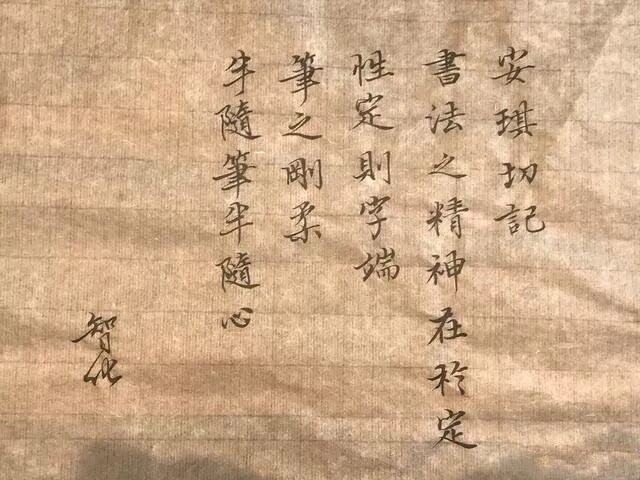 安琪切記
書法之精神在於定
性定則字端
筆之剛柔
半隨筆半隨心
智化